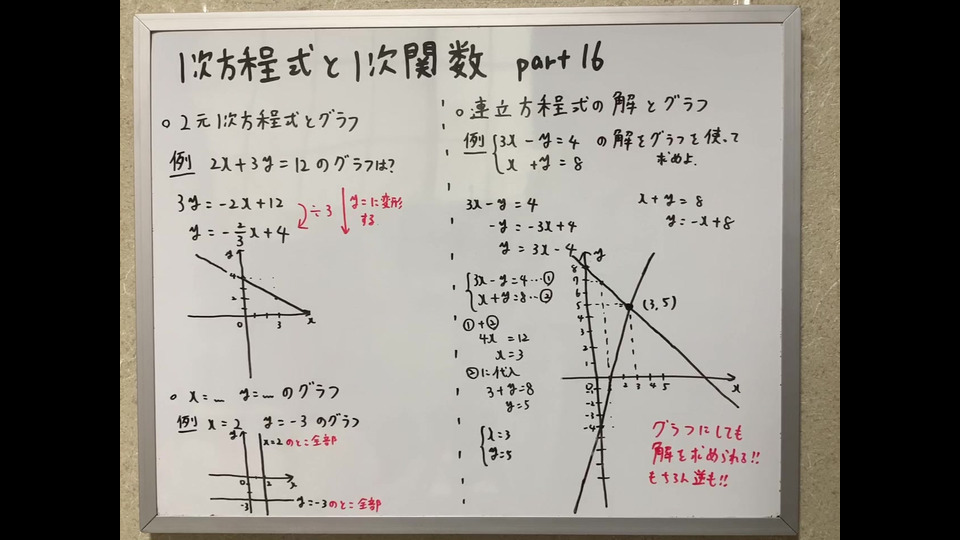 1次方程式と1次関数 part 16
○2元1次方程式とグラフ
例 2x+3y=12のグラフは?
3y=-2x+12
÷3
y=に変形
する
y=-2/3x+4
y
4
2
0
3
x
○x=… y=…のグラフ
例 x=2 y=-3のグラフ
y
x=2のとこ全部
0
2
x
-3
y=-3のとこ全部
○連立方程式の解とグラフ
例 {3x-y=4
x+y=8
の解をグラフを使って
求めよ.
3x-y=4
-y=-3x+4
y=3x-4
x+y=8
y=-x+8
{3x-y=4…①
x+y=8…②
①+②
4x=12
x=3
②に代入
3+y=8
y=5
{x=3
y=5
y
8
7
6
5
4
3
2
1
0
-1
-2
-3
-4
2 3 4 5
x
(3,5)
グラフにしても
解を求められる!!
もちろん逆も!!